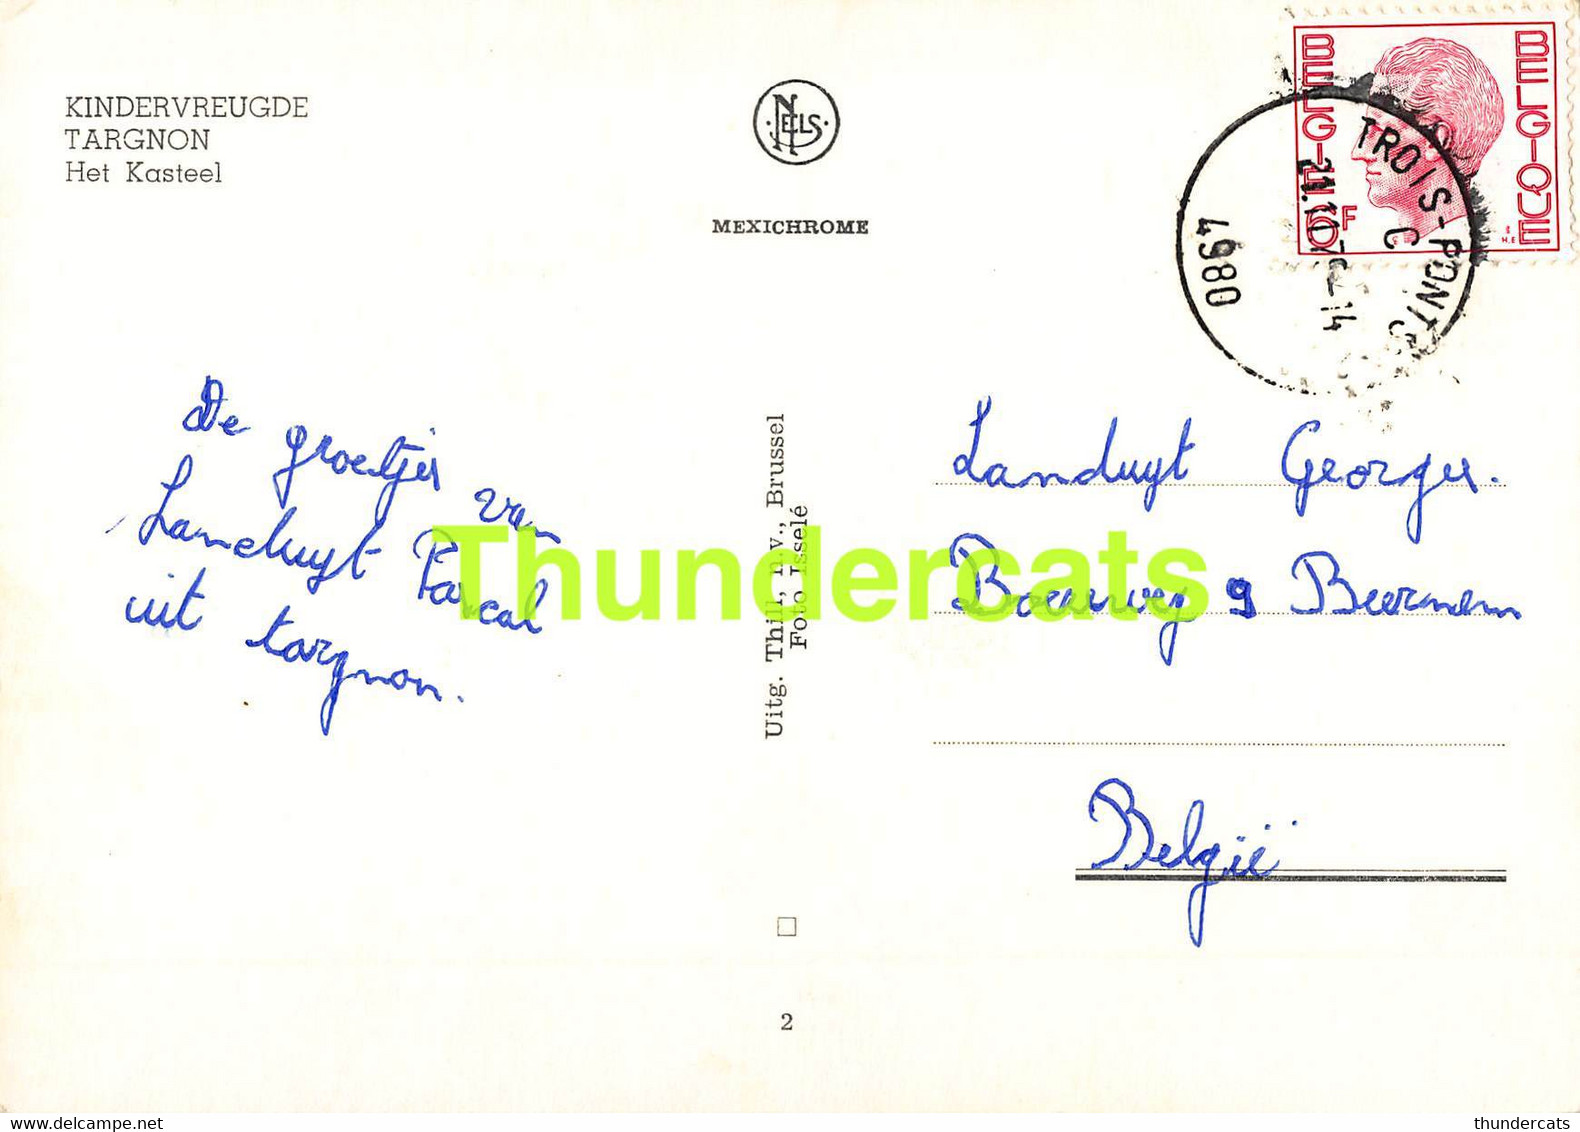 KINDERVREUGDE
TARGNON
Het Kasteel
NELS
MEXICHROME
BELGIE
BELGIQUE
6F
TROIS-PONTS
C
4980
De groetjes van
Landuyt Pascal
uit targnon.
Uitg. Thill, n.v., Brussel
Foto Isselé
Landuyt Georges.
9 Beernem
België
2
Thundercats
delcampe.net
thundercats